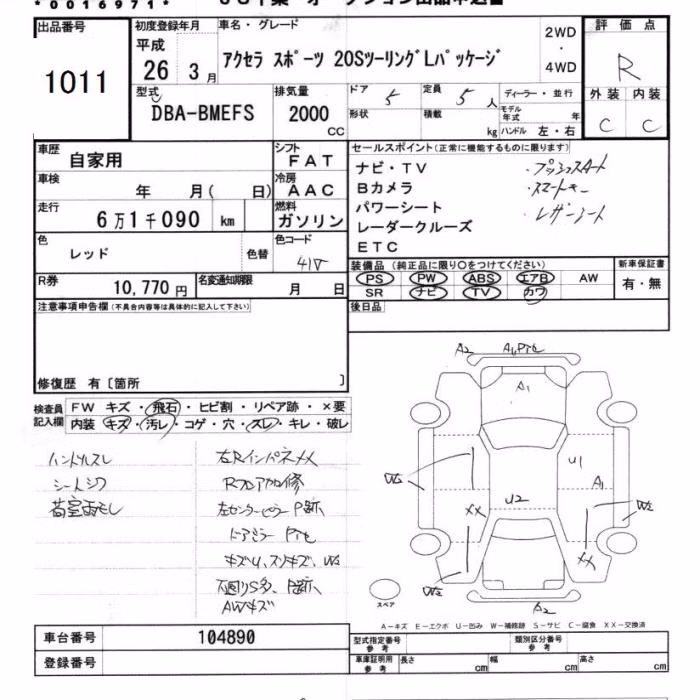 *0016971*
出品番号
1011
初度登録年月
平成
26 3月
車名・グレード
アクセラ スポーツ 20Sツーリング Lパッケージ
2WD
・
4WD
評価点
R
外装 内装
C C
型式
DBA-BMEFS
排気量
2000
cc
ドア
5
定員
5人
形状
積載
kg
ディーラー・並行
モデル年式 年
ハンドル 左・右
車歴
自家用
シフト
FAT
車検
年 月( 日)
冷房
AAC
走行
6万1千090 km
燃料
ガソリン
色
レッド
色替
色コード
41V
R券
10,770円
名変通知期限
月 日
セールスポイント(正常に機能するものに限ります)
ナビ・TV
Bカメラ
パワーシート
レーダークルーズ
ETC
・プッシュスタート
・スマートキー
・レザーシート
装備品(純正品に限り〇をつけてください)
PS PW ABS エアB AW
SR ナビ TV カワ
新車保証書
有・無
後日品
注意事項申告欄(不具合内容等は具体的に記入して下さい)
修復歴 有〔箇所 〕
検査員
記入欄
FW キズ・飛石・ヒビ割・リペア跡・×要
内装・キズ・汚レ・コゲ・穴・スレ・キレ・破レ
ハンドルスレ
シートシワ
荷室両モレ
右Rインパネ××
Rフロア加修
左センターピラーP跡
ドアミラーPte
キズU、スリキズ、W2
下廻りS多、P跡
AWキズ
A2 A1Pte
A1
U1
A1
W2
U2
XX
W2
XX
W2
A2
スペア
A-キズ E-エクボ U-凹み W-補修跡 S-サビ C-腐食 XX-交換済
車台番号
104890
登録番号
型式指定番号
参考
類別区分番号
参考
車庫証明用
参考
長さ cm
幅 cm
高さ cm